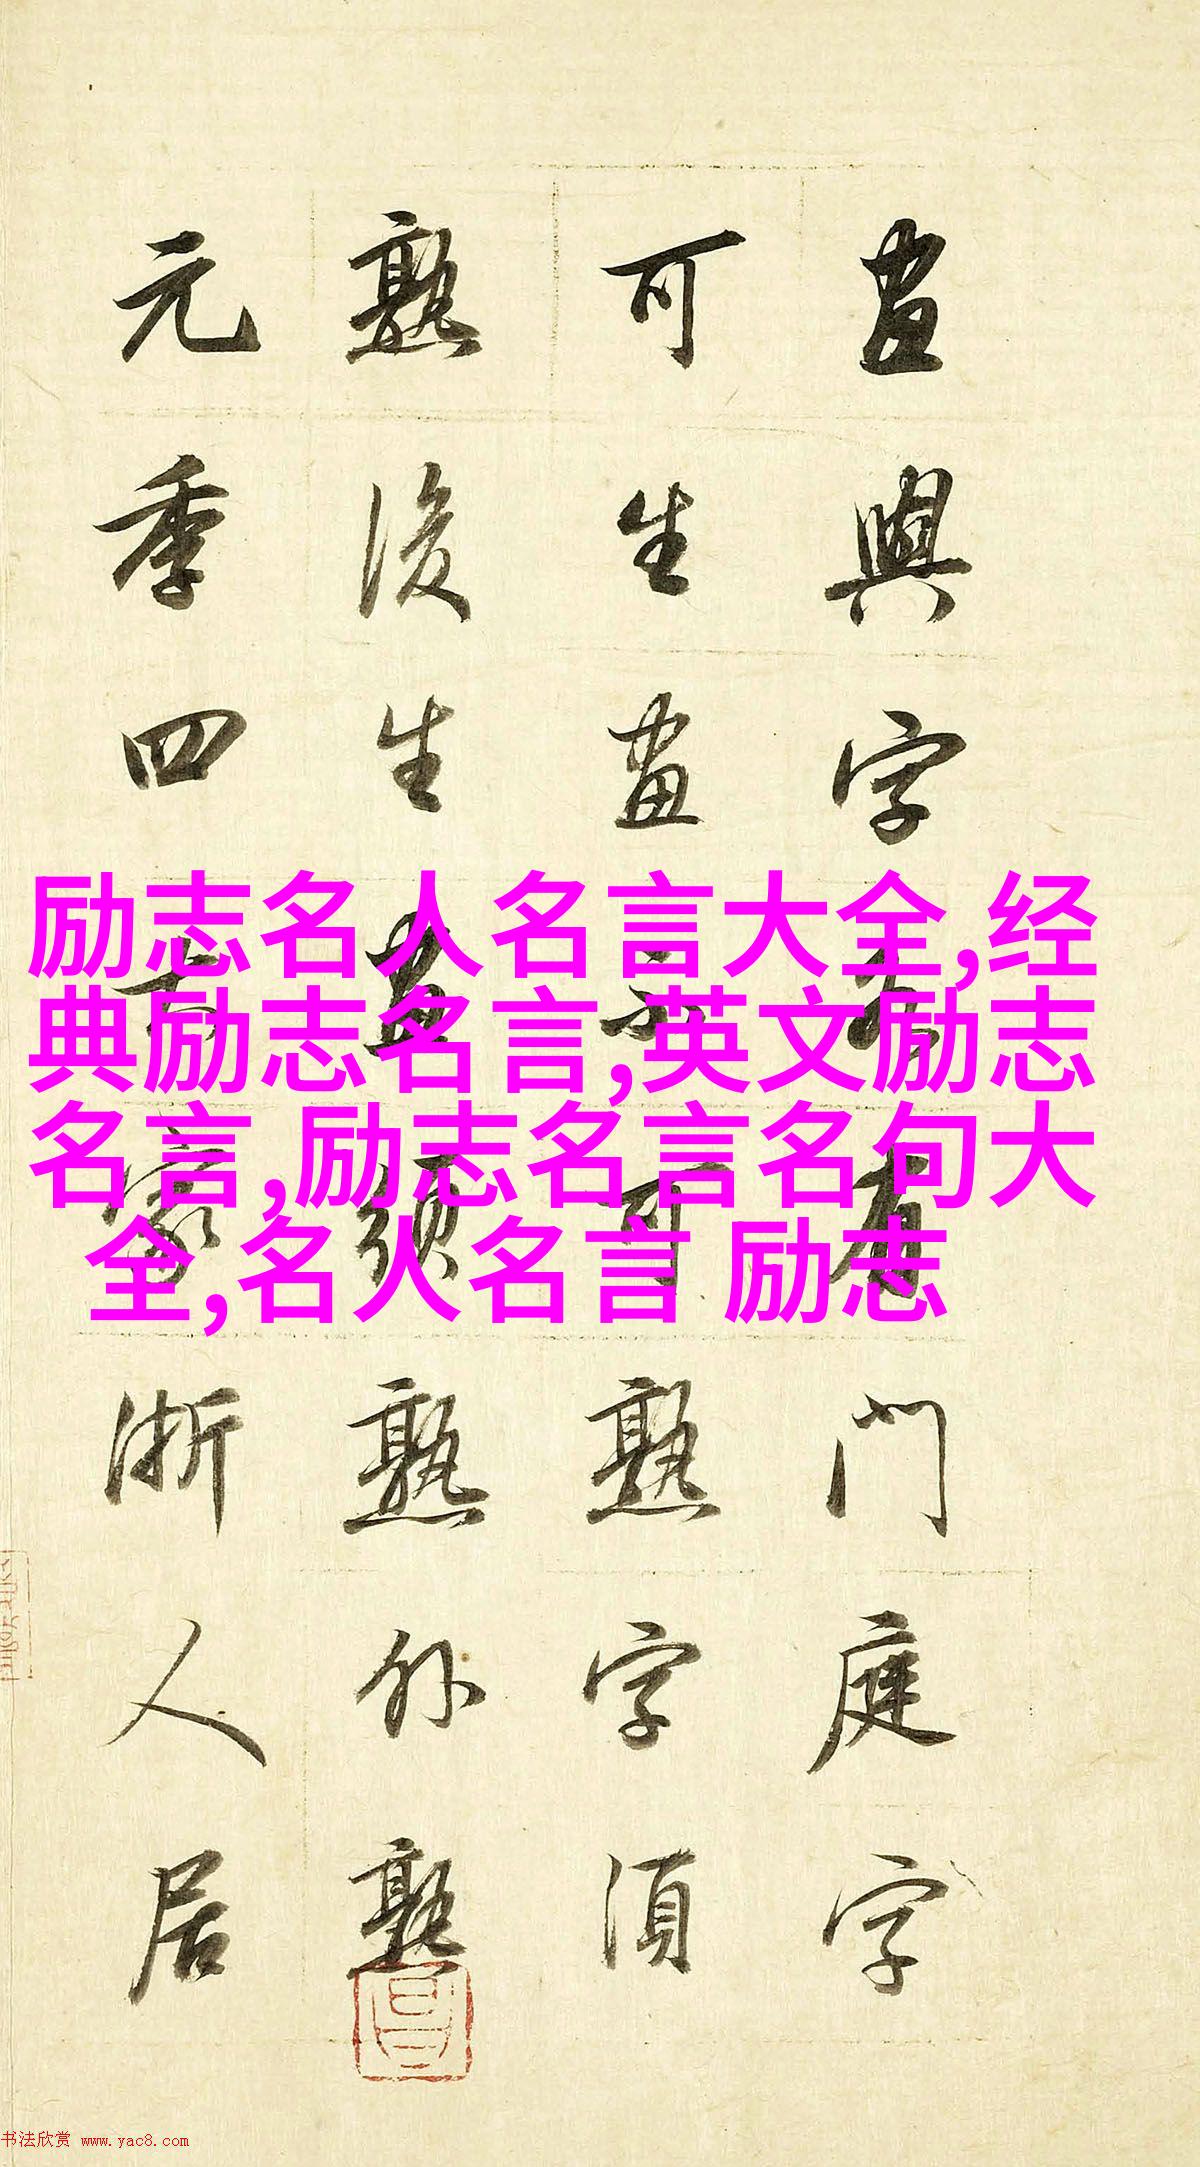 畫與字各有門庭字
可生畫不可熟字須
熟後生畫須熟外熟
元季四大家浙人居
励志名人名言大全,经
典励志名言,英文励志
名言,励志名言名句大
全,名人名言 励志
书法欣赏 www.yac8.com